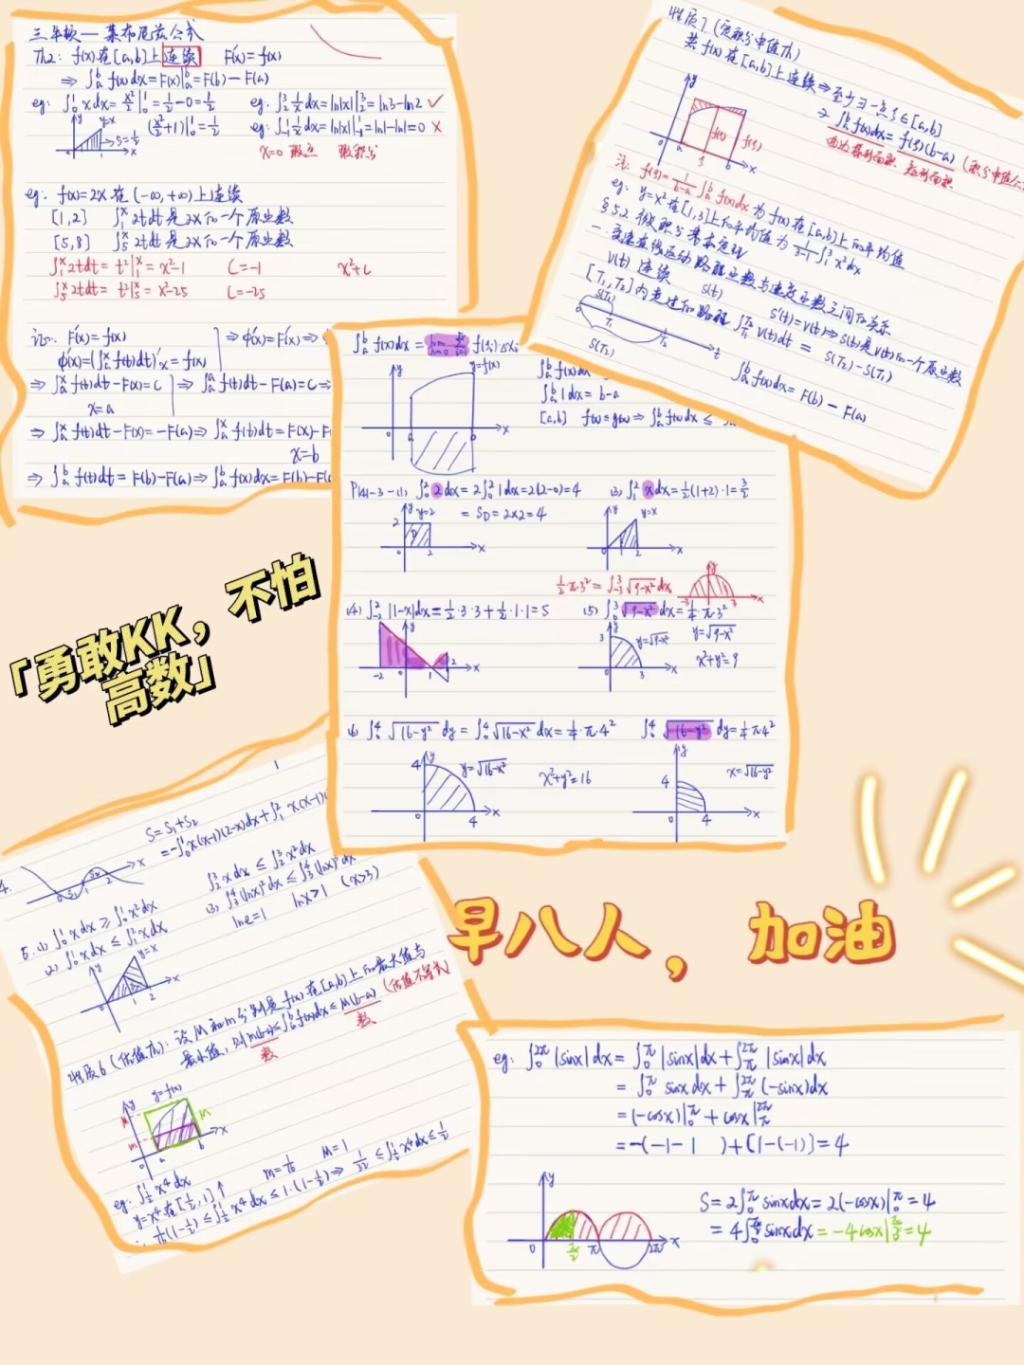 三. 牛顿—莱布尼兹公式
Th2: f(x)在[a,b]上连续 F'(x)=f(x)
⇒ ∫ₐᵇ f(x)dx = F(x)|ₐᵇ = F(b)-F(a)
eg: ∫₀¹ xdx = x²/2|₀¹ = 1/2-0 = 1/2 eg: ∫₂³ 1/x dx = ln|x||₂³ = ln3-ln2 ✓
(x²/2+1)|₀¹ = 1/2 eg: ∫₋₁¹ 1/x dx = ln|x||₋₁¹ = ln1-ln1=0 ×
y=x S=1/2
x=0
eg: f(x)=2x 在(-∞,+∞)上连续
[1,2] ∫₁ˣ 2tdt 是2x的一个原函数
[5,8] ∫₅ˣ 2tdt 是2x的一个原函数
∫₁ˣ 2tdt = t²|₁ˣ = x²-1 C=-1 x²+C
∫₅ˣ 2tdt = t²|₅ˣ = x²-25 C=-25
F'(x)=f(x)
φ'(x)=(∫ₐˣ f(t)dt)'ₓ = f(x)
⇒ φ'(x)=F'(x)⇒
⇒ ∫ₐˣ f(t)dt-F(x)=C ⇒ ∫ₐˣ f(t)dt-F(a)=C⇒
x=a
⇒ ∫ₐˣ f(t)dt-F(x)=-F(a)⇒ ∫ₐˣ f(t)dt=F(x)-F
x=b
⇒ ∫ₐᵇ f(t)dt=F(b)-F(a)⇒ ∫ₐᵇ f(x)dx=F(b)-F(a
性质7(定积分中值Th)
若f(x)在[a,b]上连续⇒至少∃一点ξ∈[a,b]
⇒ ∫ₐᵇ f(x)dx = f(ξ)(b-a)
曲边梯形面积 矩形面积
注: f(ξ)=1/(b-a) ∫ₐᵇ f(x)dx 为f(x)在[a,b]上的平均值
eg: y=x²在[1,3]上的平均值为 1/(3-1) ∫₁³ x²dx
§5.2 微积分基本定理
一. 变速直线运动路程函数与速度函数之间的关系
v(t) 连续 s(t) s'(t)=v(t)⇒s(t)是v(t)的一个原函数
[T₁,T₂]内走过的路程 ∫ v(t)dt = s(T₂)-s(T₁)
s(T₁)
s(T₂)
∫ₐᵇ f(x)dx = F(b)-F(a)
∫ₐᵇ f(x)dx = f(ξᵢ)Δxᵢ
y=f(x)
∫ₐᵇ f(x)dx
∫ₐᵇ 1dx = b-a
[a,b] ⇒ ∫ₐᵇ f(x)dx ≤
∫₀² 2dx = 2∫₀² 1dx = 2(2-0)=4 ∫₁² xdx = 1/2(1+2)·1 = 3/2
y=2 = S□ = 2×2=4 y=x
1/2·π·3² = ∫₋₃³ √(9-x²) dx
(4) ∫₋₂² |1-x|dx = 1/2·3·3+1/2·1·1=5 (5) ∫₀³ √(9-x²) dx = 1/4·π·3²
y=√(9-x²) y=√(9-x²)
x²+y²=9
(6) ∫₀⁴ √(16-y²) dy = ∫₀⁴ √(16-x²) dx = 1/4·π·4² ∫₀⁴ √(16-y²) dy = 1/4π·4²
y=√(16-x²) x²+y²=16 x=√(16-y²)
「勇敢KK，不怕
高数」
早八人，加油
4. S=S₁+S₂
=-∫₀¹ x(x-1)(2-x)dx+∫₁² x(x-1)(
5. (1) ∫₀¹ xdx ≥ ∫₀¹ x²dx
(2) ∫₁² xdx ≤ ∫₁² x²dx
(3) ∫₃⁴ (lnx)²dx ≤ ∫₃⁴ (lnx)³dx
lne=1 lnx>1 (x>3)
y=x
性质6(估值Th): 设M和m分别是f(x)在[a,b]上的最大值与
最小值, 则m(b-a)≤∫ₐᵇ f(x)dx≤M(b-a) (估值不等式)
数 数
y=f(x)
eg: ∫ x⁴dx
y=x⁴在[1/2,1]↑ m=1/16 M=1
∴ 1/16(1-1/2)≤∫ x⁴dx≤1·(1-1/2)⇒ 1/32≤∫ x⁴dx≤1/2
eg: ∫₀²π |sinx|dx = ∫₀π |sinx|dx+∫π²π |sinx|dx
= ∫₀π sinxdx+∫π²π (-sinx)dx
=(-cosx)|₀π+cosx|π²π
=-(-1-1 )+[1-(-1)]=4
S=2∫₀π sinxdx=2(-cosx)|₀π=4
=4∫₀ sinxdx=-4cosx|₀=4